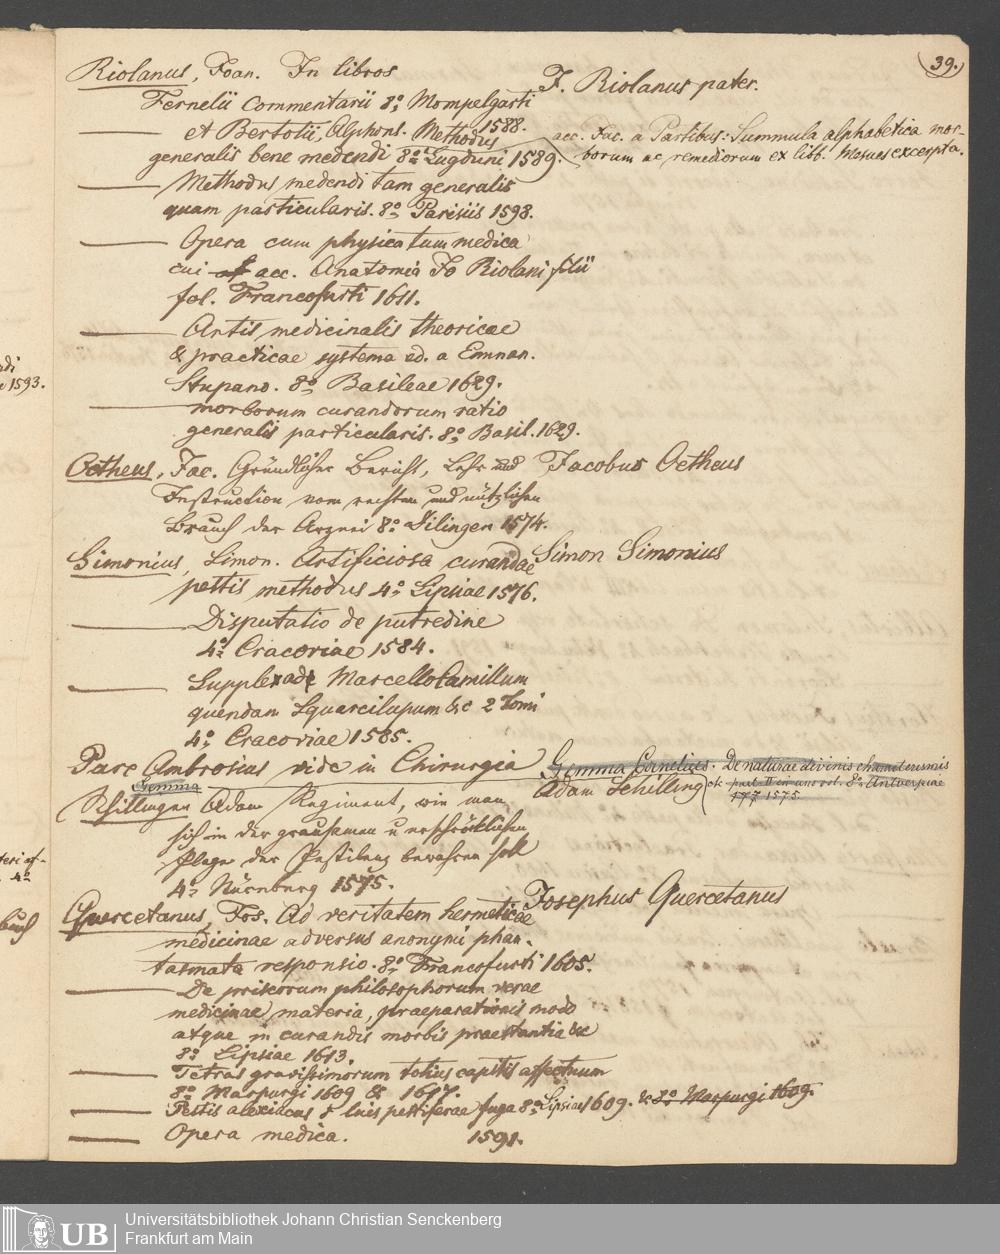 39.
Riolanus, Joan. In libros
J. Riolanus pater.
Fernelii Commentarii 8o Mompelgarti
1588.
—— et Bertotii, Alphons. Methodus
generalis bene medendi 8o Lugduni 1589.
acc. Jac. a Partibus: Summula alphabetica mor-
borum ac remediorum ex libb. Mesues excerpta.
—— Methodus medendi tam generalis
quam particularis. 8o Parisiis 1598.
—— Opera cum physica tum medica
cui acc. Anatomia Jo Riolani filii
fol. Francofurti 1611.
—— Artis medicinalis theoricae
& practicae systema ed. a Emman.
Stupano. 8o Basileae 1629.
—— morborum curandorum ratio
generalis particularis. 8o Basil. 1629.
Oetheus, Jac. Gründlicher Bericht, Lehr und
Jacobus Oetheus
Instruction vom rechten und nützlichen
Brauch der Arznei 8o Dilingen 1574.
Simonius, Simon. Artificiosa curandae
Simon Simonius
pestis methodus 4o Lipsiae 1576.
—— Disputatio de putredine
4o Cracoviae 1584.
—— Supplex ad Marcello Camillum
quendam Squarcilupum &c 2 Tomi
4o Cracoviae 1585.
Paré Ambrosius vide in Chirurgia
Gemma Cornelius: De naturae divinis characterismis
part. II in uno vol. 8o Antverpiae
1575.
Gemma
Schillingen Adam Regiment, wie man
Adam Schilling
sich in der grausamen u erschröcklichen
Plage der Pestilenz bewahren soll
4o Nürnburg 1575.
Quercetanus, Jos. Ad veritatem hermeticae
Josephus Quercetanus
medicinae adversus anonymi phan-
tasmata responsio. 8o Francofurti 1605.
—— De priscorum philosophorum verae
medicinae materia, praeparationis modo
atque in curandis morbis praestantia &c
8o Lipsiae 1613.
—— Tetras gravissimorum totius capitis affectuum
8o Marpurgi 1609 & 1617.
—— Pestis alexiacus s luis pestiferae fuga 8o Lipsiae 1609. & 8o Marpurgi 1609.
—— Opera medica. 1591.
1593.
4o
Universitätsbibliothek Johann Christian Senckenberg
Frankfurt am Main
UB